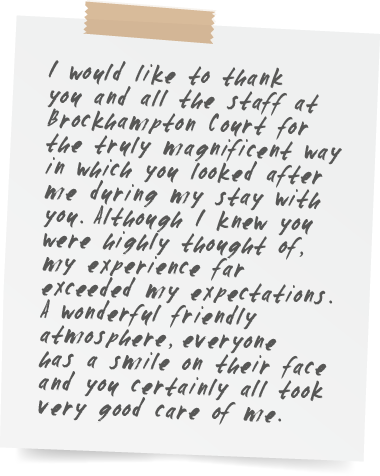 I would like to thank
you and all the staff at
Brockhampton Court for
the truly magnificent way
in which you looked after
me during my stay with
you. Although I knew you
were highly thought of,
my experience far
exceeded my expectations.
A wonderful friendly
atmosphere, everyone
has a smile on their face
and you certainly all took
very good care of me.